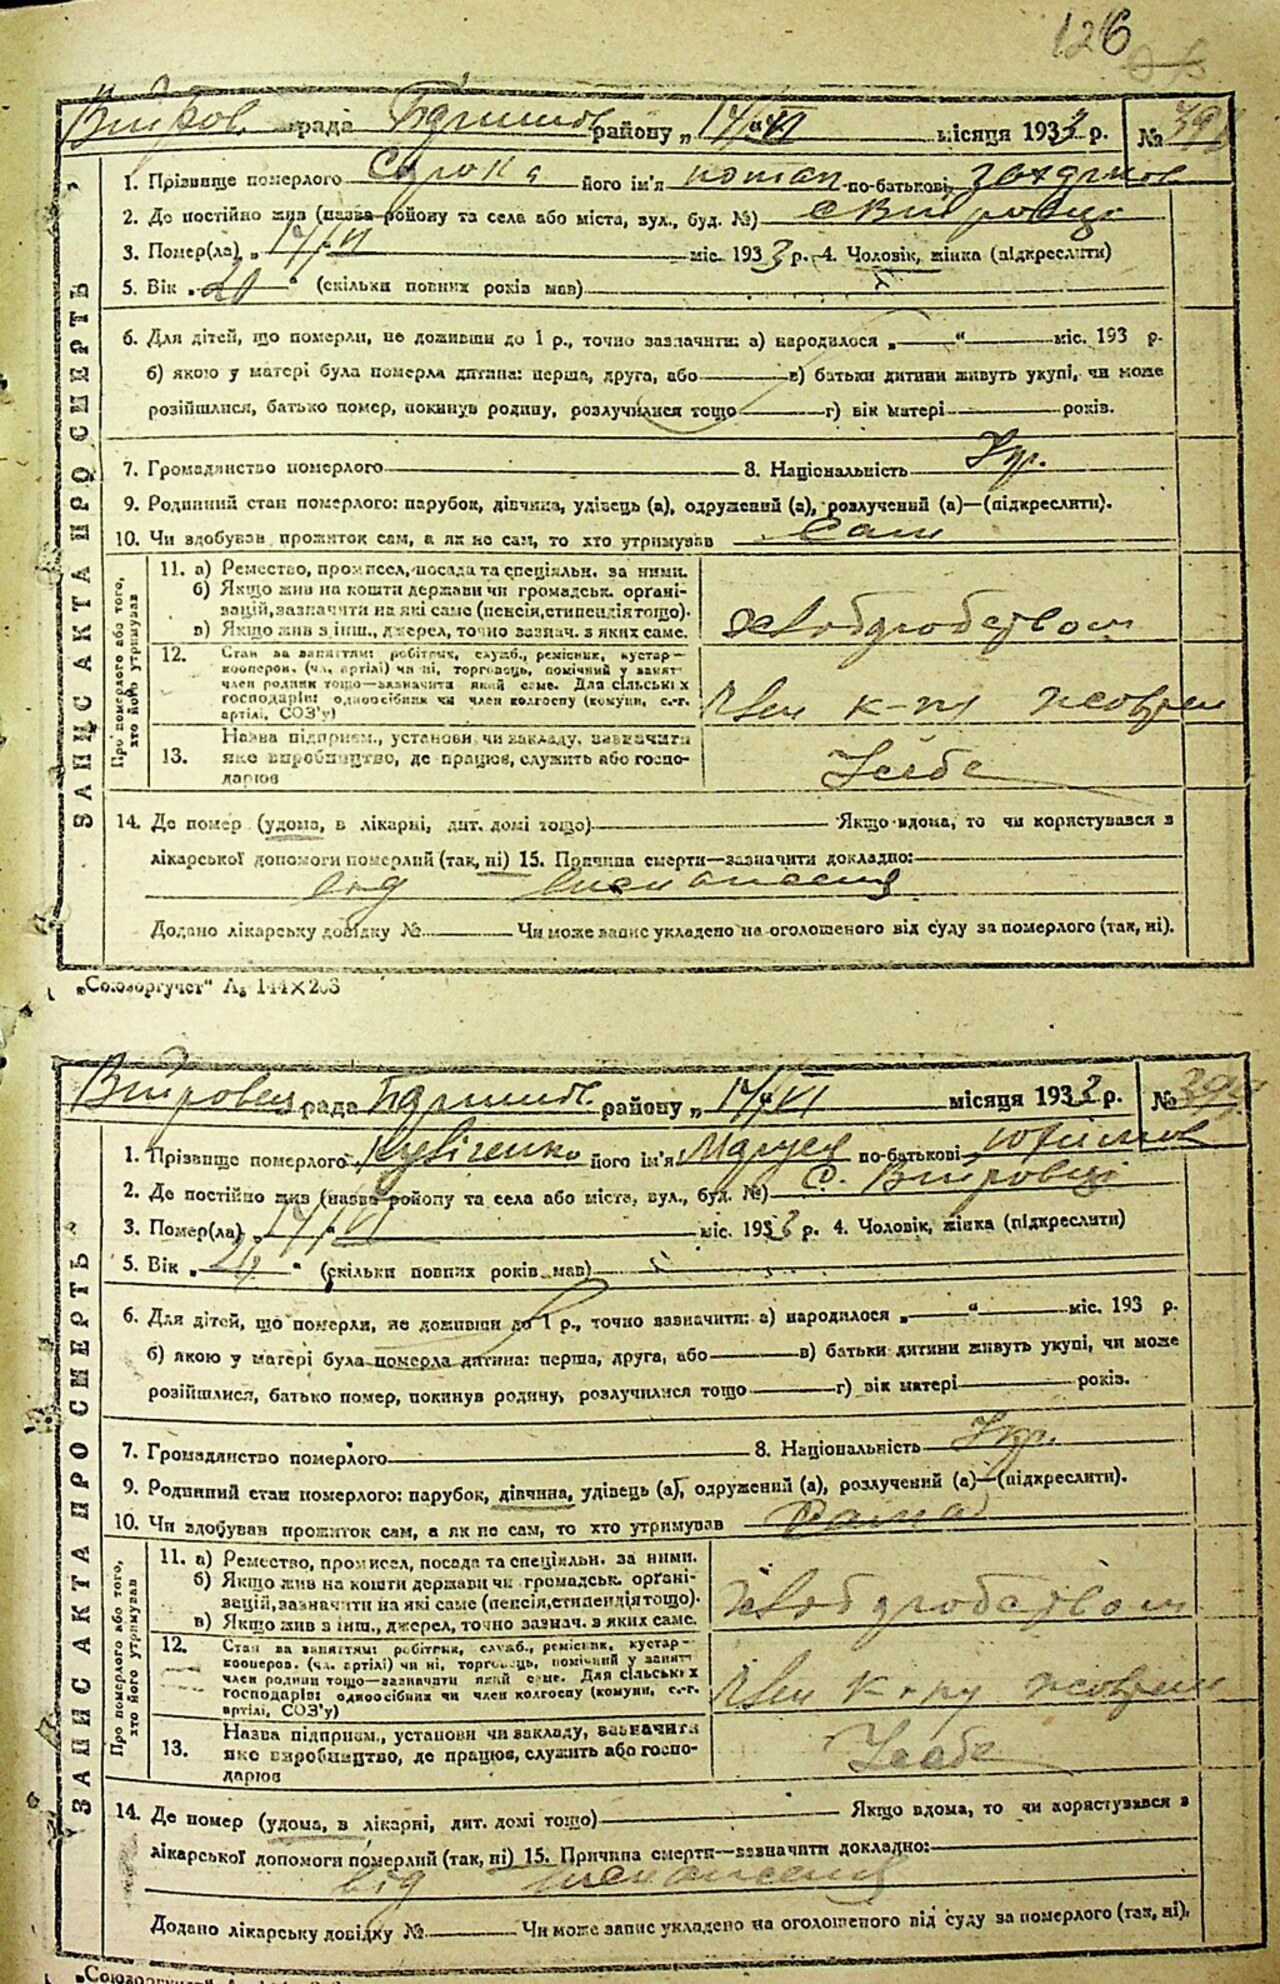 126
рада району „ 14/VI місяця 1933 р. №
ЗАПИС АКТА ПРО СМЕРТЬ
1. Прізвище померлого Сорока його ім'я Потап по-батькові
2. Де постійно жив (назва району та села або міста, вул., буд. №)
3. Помер(ла) „ 14/VI міс. 1933 р. 4. Чоловік, жінка (підкреслити)
5. Вік „ “ (скільки повних років мав)
6. Для дітей, що померли, не доживши до 1 р., точно зазначити: а) народилося „ “ міс. 193 р.
б) якою у матері була померла дитина: перша, друга, або в) батьки дитини живуть укупі, чи може
розійшлися, батько помер, покинув родину, розлучилися тощо г) вік матері років.
7. Громадянство померлого 8. Національність Укр.
9. Родинний стан померлого: парубок, дівчина, удівець (а), одружений (а), розлучений (а)—(підкреслити).
10. Чи здобував прожиток сам, а як не сам, то хто утримував Сам
Про померлого або того,
хто його утримував
11. а) Ремество, промисел, посада та спеціяльн. за ними.
б) Якщо жив на кошти держави чи громадськ. орґані-
зацій, зазначити на які саме (пенсія, стипендія тощо).
в) Якщо жив з інш., джерел, точно зазнач. з яких саме.
12. Стан за заняттям: робітник, служб., ремісник, кустар—
кооперов. (чл. артілі) чи ні, торговець, помічний у занят.
член родини тощо—зазначити який саме. Для сільських
господарів: одноосібник чи член колгоспу (комуни, с.-г.
артілі, СОЗ'у)
Член к-пу
13. Назва підприєм., установи чи закладу, зазначити
яке виробництво, де працює, служить або госпо-
дарює
14. Де помер (удома, в лікарні, дит. домі тощо) Якщо вдома, то чи користувався з
лікарської допомоги померлий (так, ні) 15. Причина смерти—зазначити докладно:
від
Додано лікарську довідку № Чи може запис укладено на оголошеного від суду за померлого (так, ні).
„Союзоргучет“ А₅ 144×203
рада району „ 14/VI місяця 1933 р. №
ЗАПИС АКТА ПРО СМЕРТЬ
1. Прізвище померлого його ім'я Маруся по-батькові
2. Де постійно жив (назва району та села або міста, вул., буд. №) с.
3. Помер(ла) „ 14/VI міс. 1933 р. 4. Чоловік, жінка (підкреслити)
5. Вік „ “ (скільки повних років мав)
6. Для дітей, що померли, не доживши до 1 р., точно зазначити: а) народилося „ “ міс. 193 р.
б) якою у матері була померла дитина: перша, друга, або в) батьки дитини живуть укупі, чи може
розійшлися, батько помер, покинув родину, розлучилися тощо г) вік матері років.
7. Громадянство померлого 8. Національність Укр.
9. Родинний стан померлого: парубок, дівчина, удівець (а), одружений (а), розлучений (а)—(підкреслити).
10. Чи здобував прожиток сам, а як не сам, то хто утримував Сама
Про померлого або того,
хто його утримував
11. а) Ремество, промисел, посада та спеціяльн. за ними.
б) Якщо жив на кошти держави чи громадськ. орґані-
зацій, зазначити на які саме (пенсія, стипендія тощо).
в) Якщо жив з інш., джерел, точно зазнач. з яких саме.
12. Стан за заняттям: робітник, служб., ремісник, кустар—
кооперов. (чл. артілі) чи ні, торговець, помічний у занят.
член родини тощо—зазначити який саме. Для сільських
господарів: одноосібник чи член колгоспу (комуни, с.-г.
артілі, СОЗ'у)
Член к-пу
13. Назва підприєм., установи чи закладу, зазначити
яке виробництво, де працює, служить або госпо-
дарює
14. Де помер (удома, в лікарні, дит. домі тощо) Якщо вдома, то чи користувався з
лікарської допомоги померлий (так, ні) 15. Причина смерти—зазначити докладно:
від
Додано лікарську довідку № Чи може запис укладено на оголошеного від суду за померлого (так, ні).